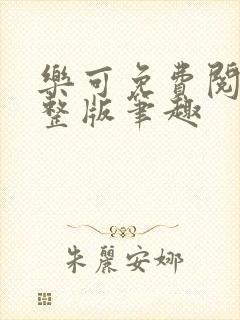 樂可免費閱
整版筆趣
朱麗安娜